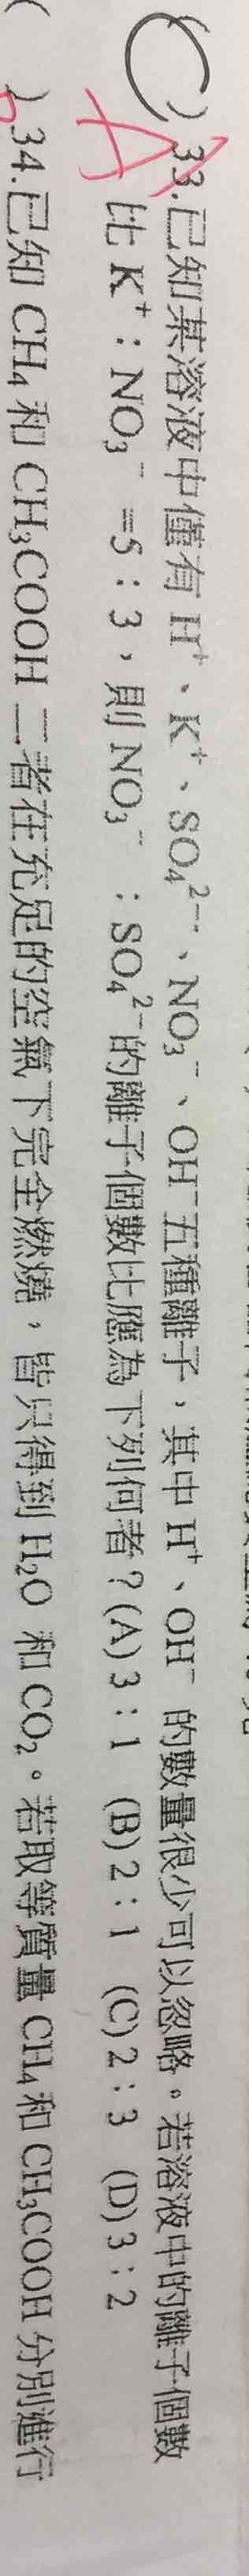 C
A
( )33.已知某溶液中僅有 H⁺、K⁺、SO₄²⁻、NO₃⁻、OH⁻五種離子，其中 H⁺、OH⁻ 的數量很少可以忽略。若溶液中的離子個數
比 K⁺：NO₃⁻ =5：3，則 NO₃⁻ ：SO₄²⁻的離子個數比應為下列何者？(A) 3：1 (B) 2：1 (C) 2：3 (D) 3：2
( )34.已知 CH₄ 和 CH₃COOH 二者在充足的空氣下完全燃燒，皆只得到 H₂O 和 CO₂。若取等質量 CH₄ 和 CH₃COOH 分別進行